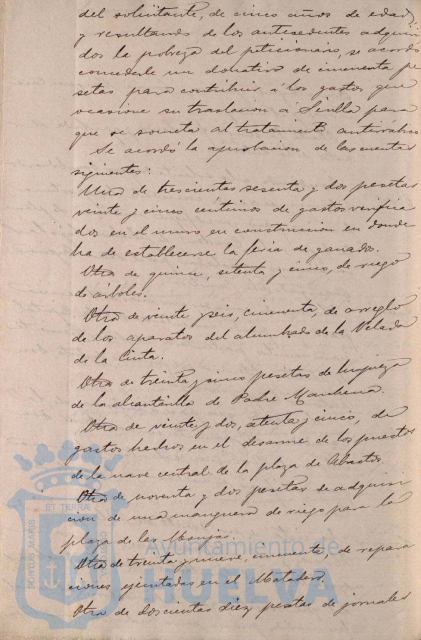 del solicitante, de cinco años de edad,
y resultando de los antecedentes adquiri
dos la pobreza del peticionario, se acordó
concederle un donativo de cincuenta pe
setas para contribuir á los gastos que
ocasione su traslacion á Sevilla para
que se someta al tratamiento antirábico
Se acordó la aprobacion de las cuentas
siguientes:
Una de trescientas sesenta y dos pesetas
veinte y cinco céntimos de gastos verifica
dos en el muro en construccion en donde
ha de establecerse la feria de ganados.
Otra de quince, setenta y cinco, de riego
de árboles.
Otra de veinte y seis, cincuenta, de arreglo
de los aparatos del alumbrado de la Velada
de la Cinta.
Otra de treinta y cinco pesetas de limpieza
de la alcantarilla de Padre Marchena.
Otra de veinte y dos, setenta y cinco, de
gastos hechos en el desarme de los puestos
de la nave central de la plaza de Abastos.
Otra de noventa y dos pesetas de adquisi
cion de una manguera de riego para la
plaza de las Monjas.
Otra de treinta y nueve, cincuenta, de repara
ciones ejecutadas en el Matadero.
Otra de doscientas diez pesetas de jornales
PORTUS MARIS
ET TERRA
Ayuntamiento de
HUELVA